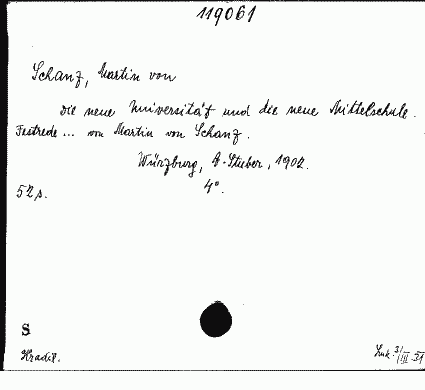 119061
Schanz, Martin von
Die neue Universität und die neue Mittelschule.
Festrede ... von Martin von Schanz.
Würzburg, A. Stuber, 1902.
4°.
52 s.
S
Hradil.
Luk. 31/III 31